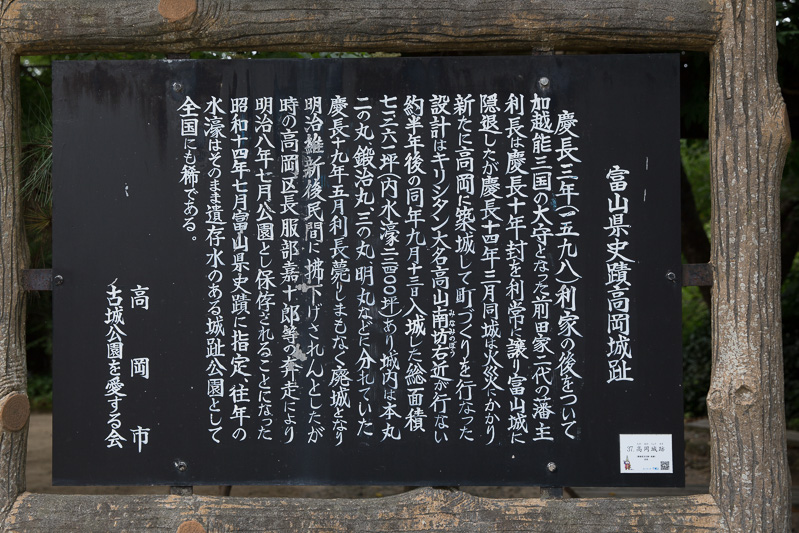 富山県史蹟高岡城趾
慶長三年(一五九八)利家の後をついて
加越能三国の大守となった前田家二代の藩主
利長は慶長十年封を利常に譲り富山城に
隠退したが慶長十四年三月同城は火災にかかり
新たに高岡に築城して町づくりを行なった
設計はキリシタン大名高山南坊右近が行ない
みなみのぼう
約半年後の同年九月十三日入城した総面積
七三六二坪(内水濠二四〇〇坪)あり城内は本丸
二の丸、鍛治丸、三の丸、明丸などに分れていた
慶長十九年五月利長薨りしまもなく廃城となり
明治維新後民間に拂下げされんとしたが
時の高岡区長服部嘉十郎等の奔走により
明治八年七月公園とし保存されることになった
昭和十四年七月富山県史蹟に指定、往年の
水濠はそのまま遺存水のある城趾公園として
全国にも稀である。
高岡市
古城公園を愛する会
高岡城跡